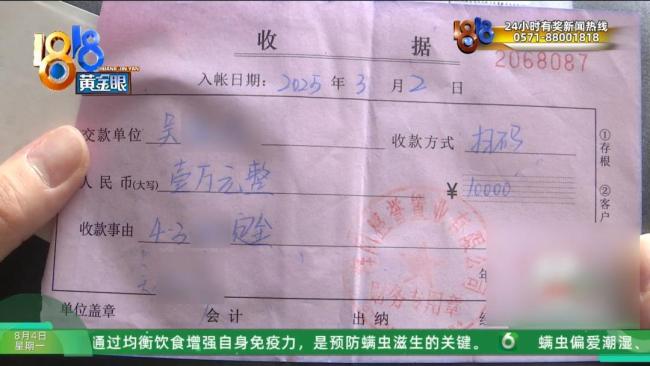 1818
HUANG JIN YAN
黄金眼
24小时有奖新闻热线
0571-88001818
1818
收 据
2068087
入帐日期：2025 年 3 月 2 日
交款单位 吴 收款方式 扫码
人民币(大写) 壹万元整 ¥ 10000
收款事由 4-3 定金
年
单位盖章 会计 出纳
①存根
②客户
财务专用章
8月4日
星期一
通过均衡饮食增强自身免疫力，是预防螨虫滋生的关键。 螨虫偏爱潮湿、